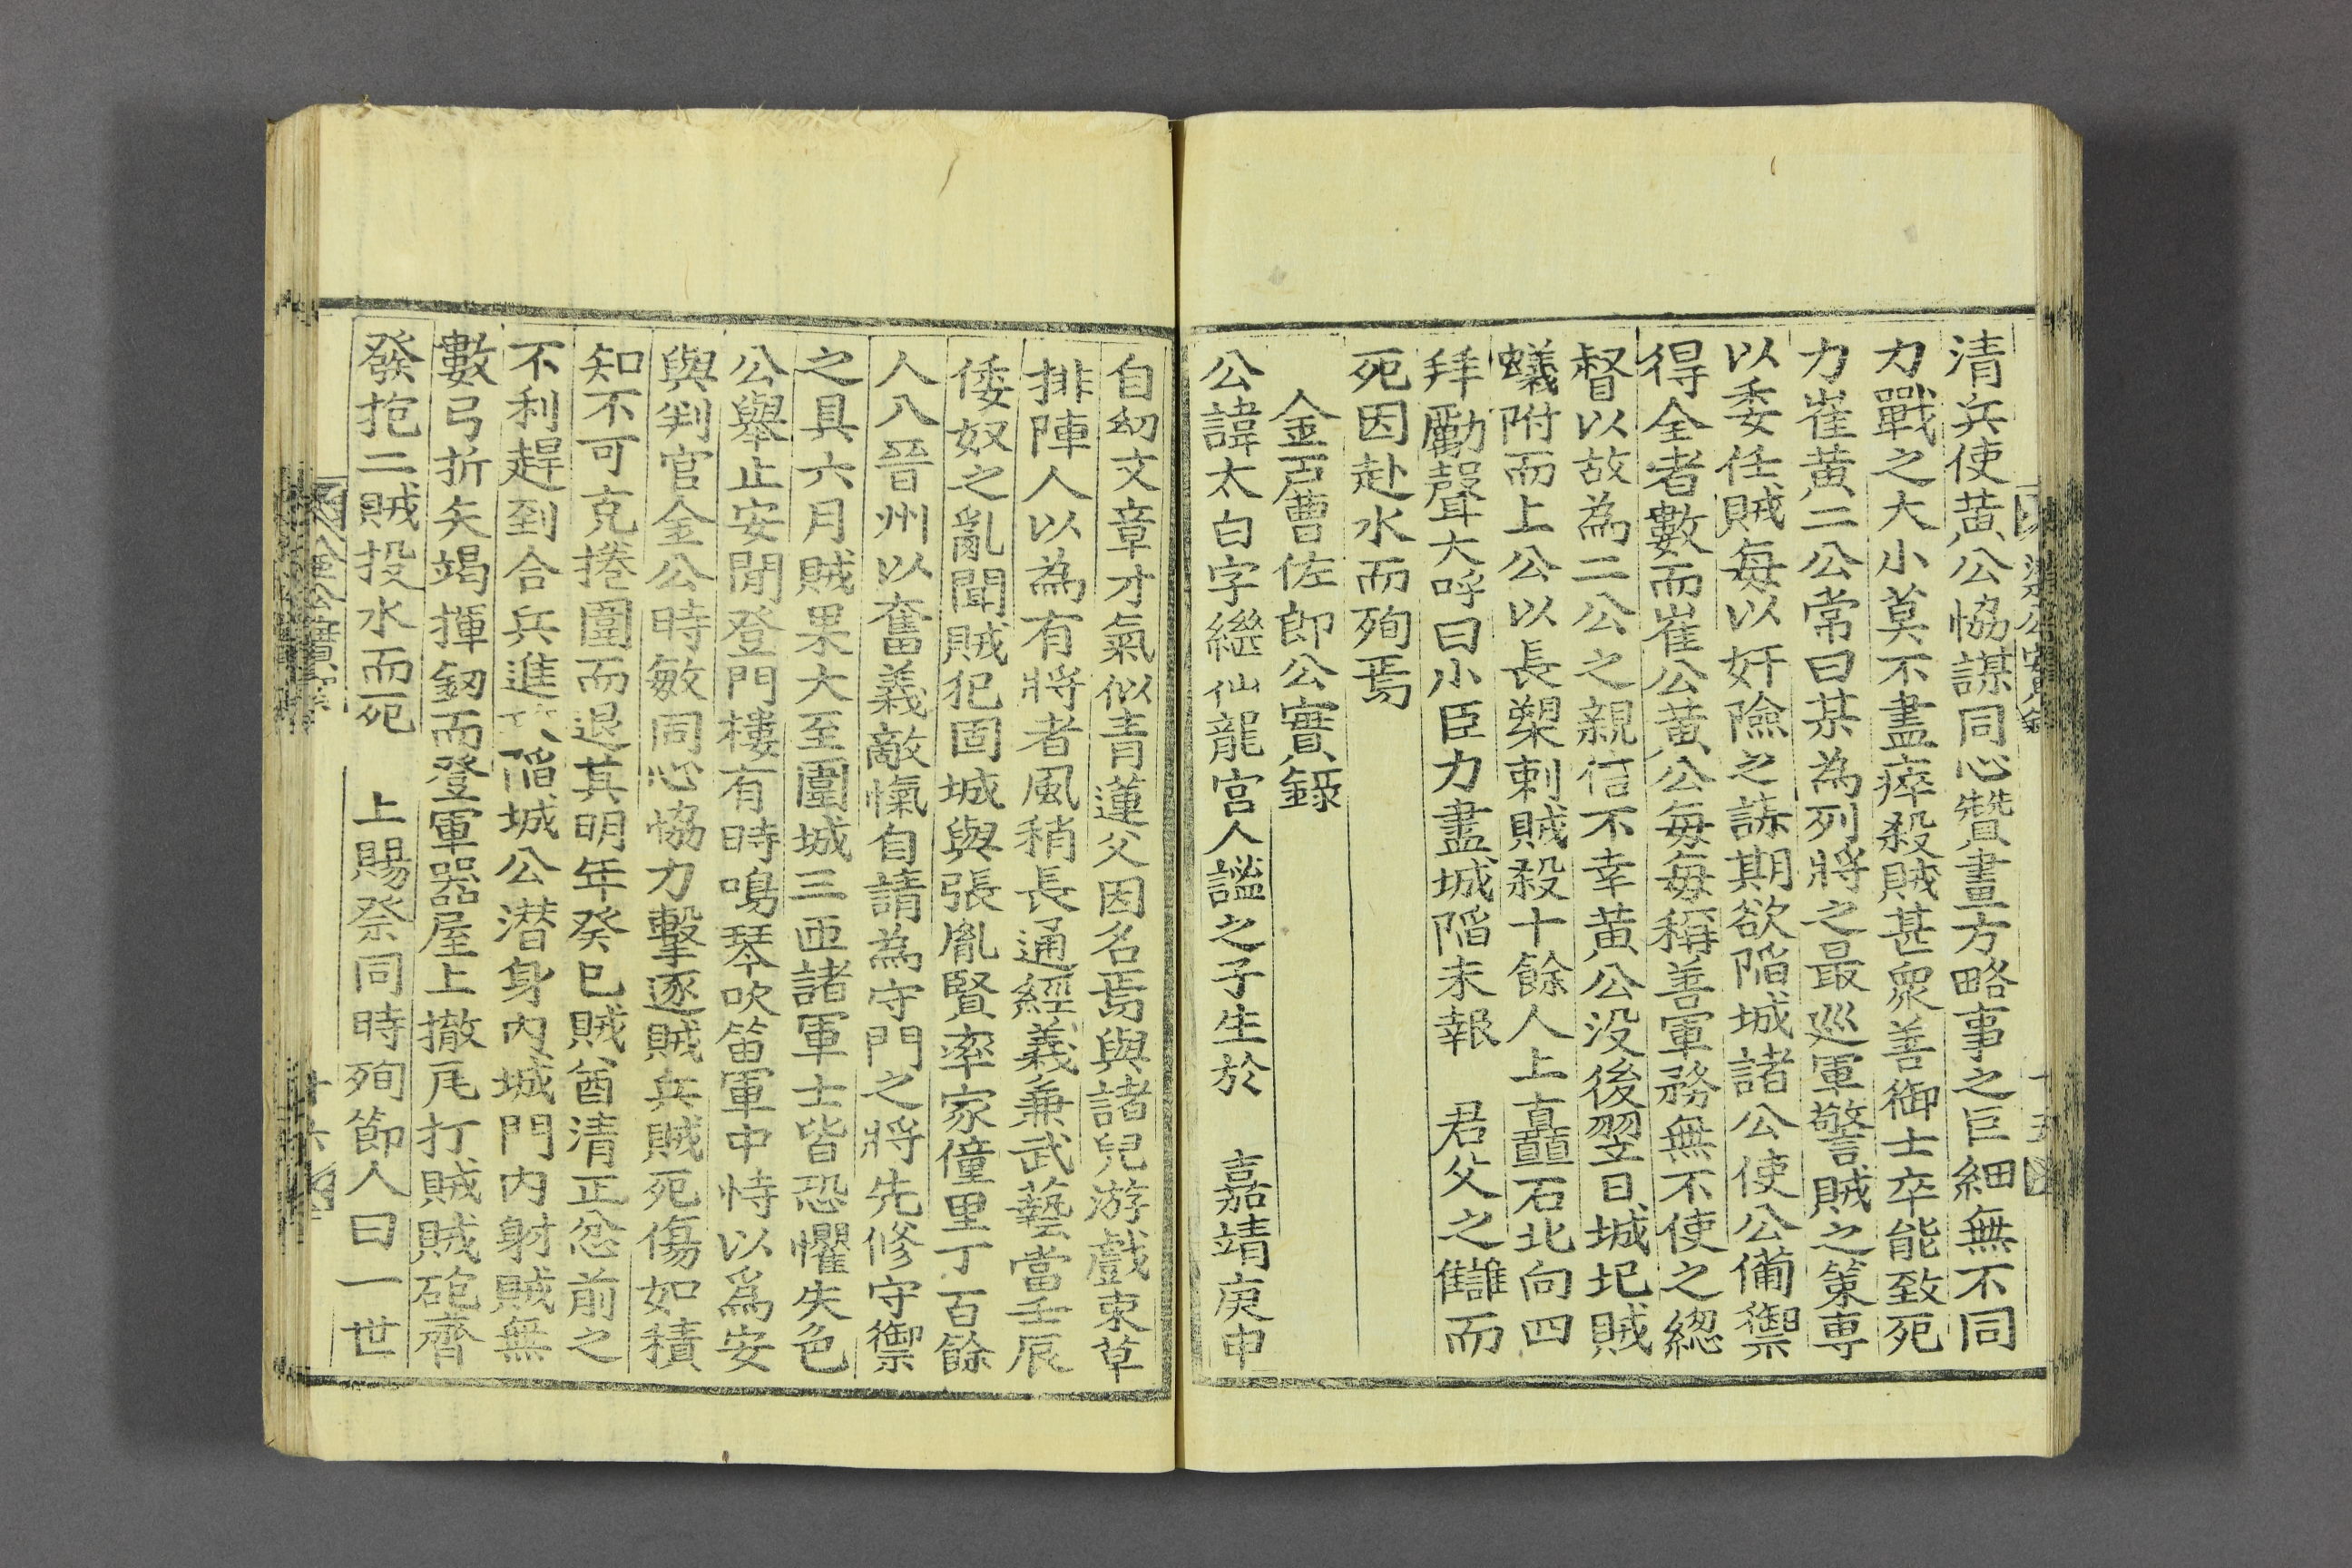 清兵使黄公恊謀同心贊畫方略事之巨細無不同
力戰之大小莫不盡瘁殺賊甚衆善御士卒能致死
力崔黄二公常曰某為列將之最巡軍警賊之策專
以委任賊每以奸險之謀期欲陷城諸公使公備禦
得全者數而崔公黄公每每稱善軍務無不使之緫
督以故為二公之親信不幸黄公没後翌日城圮賊
蟻附而上公以長槊刺賊殺十餘人上矗石北向四
拜勵聲大呼曰小臣力盡城陷未報 君父之讎而
死因赴水而殉焉
金戶曹佐郎公實錄
公諱太白字繼仙龍宮人謐之子生於 嘉靖庚申
自幼文章才氣似青蓮父因名焉與諸兒游戲束草
排陣人以為有將者風稍長通經義兼武藝當壬辰
倭奴之亂聞賊犯固城與張胤賢率家僮里丁百餘
人入晉州以奮義敵愾自請為守門之將先修守禦
之具六月賊果大至圍城三匝諸軍士皆恐懼失色
公舉止安閒登門樓有時鳴琴吹笛軍中恃以爲安
與判官金公時敏同心恊力擊逐賊兵賊死傷如積
知不可克捲圍而退其明年癸巳賊酋清正忿前之
不利趕到合兵進陷城公潜身內城門內射賊無
數弓折矢竭揮釰而登軍器屋上撤瓦打賊賊砲齊
發抱二賊投水而死 上賜祭同時殉節人曰一世
十六